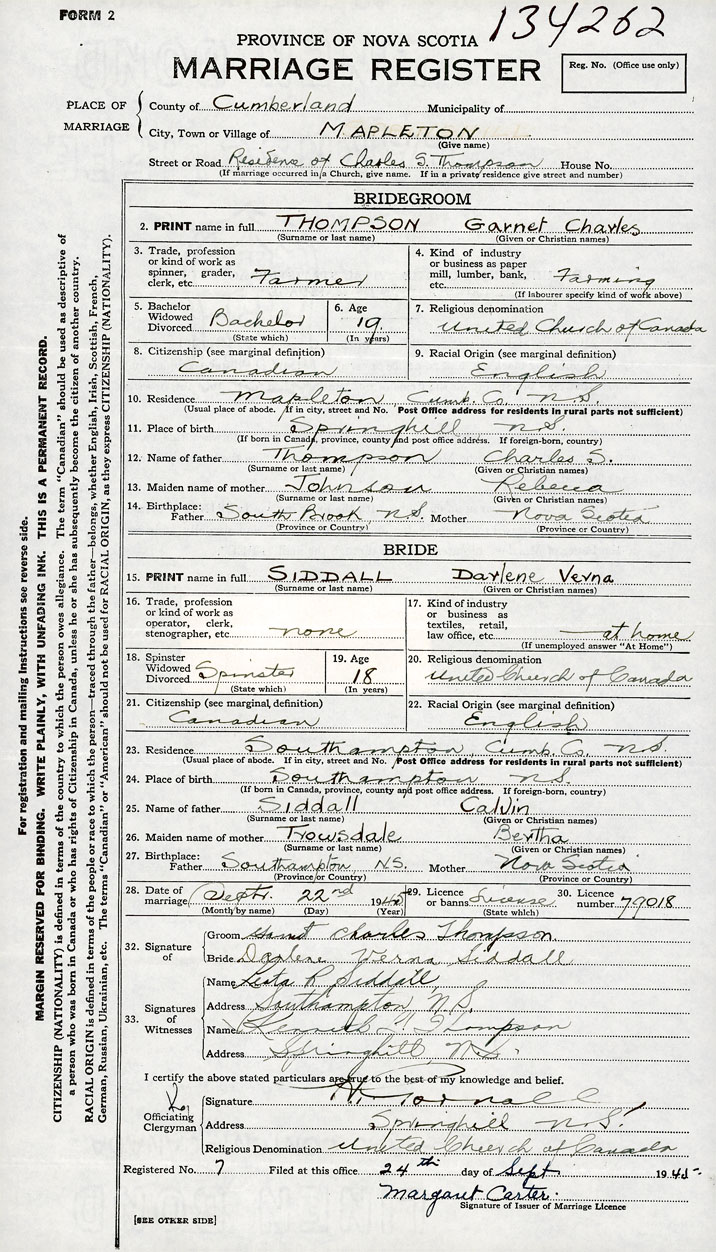 FORM 2
134262
PROVINCE OF NOVA SCOTIA
MARRIAGE REGISTER
Reg. No. (Office use only)
PLACE OF MARRIAGE
County of Cumberland Municipality of
City, Town or Village of MAPLETON
(Give name)
Street or Road Residence of Charles S. Thompson House No.
(If marriage occurred in a Church, give name. If in a private residence give street and number)
BRIDEGROOM
2. PRINT name in full THOMPSON Garnet Charles
(Surname or last name) (Given or Christian names)
3. Trade, profession or kind of work as spinner, grader, clerk, etc. Farmer
4. Kind of industry or business as paper mill, lumber, bank, etc. Farming
(If labourer specify kind of work above)
5. Bachelor Widowed Divorced Bachelor
(State which)
6. Age 19
(In years)
7. Religious denomination
United Church of Canada
8. Citizenship (see marginal definition)
Canadian
9. Racial Origin (see marginal definition)
English
10. Residence Mapleton Cumb. Co. N.S.
(Usual place of abode. If in city, street and No. Post Office address for residents in rural parts not sufficient)
11. Place of birth Springhill N.S.
(If born in Canada, province, county and post office address. If foreign-born, country)
12. Name of father Thompson Charles S.
(Surname or last name) (Given or Christian names)
13. Maiden name of mother Johnson Rebecca
(Surname or last name) (Given or Christian names)
14. Birthplace: Father South Brook, N.S. Mother Nova Scotia
(Province or Country) (Province or Country)
BRIDE
15. PRINT name in full SIDDALL Darlene Verna
(Surname or last name) (Given or Christian names)
16. Trade, profession or kind of work as operator, clerk, stenographer, etc. none
17. Kind of industry or business as textiles, retail, law office, etc. at home
(If unemployed answer "At Home")
18. Spinster Widowed Divorced Spinster
(State which)
19. Age 18
(In years)
20. Religious denomination
United Church of Canada
21. Citizenship (see marginal definition)
Canadian
22. Racial Origin (see marginal definition)
English
23. Residence Southampton, Cumb. Co. N.S.
(Usual place of abode. If in city, street and No. Post Office address for residents in rural parts not sufficient)
24. Place of birth Southampton N.S.
(If born in Canada, province, county and post office address. If foreign-born, country)
25. Name of father Siddall Calvin
(Surname or last name) (Given or Christian names)
26. Maiden name of mother Trowsdale Bertha
(Surname or last name) (Given or Christian names)
27. Birthplace: Father Southampton N.S. Mother Nova Scotia
(Province or Country) (Province or Country)
28. Date of marriage Sept. 22nd 1945
(Month by name) (Day) (Year)
29. Licence or banns License
(State which)
30. Licence number 79018
32. Signature of
Groom Garnet Charles Thompson
Bride Darlene Verna Siddall
33. Signatures of Witnesses
Name R. Siddall
Address Southampton N.S.
Name Kenneth Thompson
Address Springhill N.S.
I certify the above stated particulars are true to the best of my knowledge and belief.
Officiating Clergyman
Signature
Address Springhill N.S.
Religious Denomination United Church of Canada
Registered No. 7 Filed at this office 24th day of Sept 1945
Margaret Carter
Signature of Issuer of Marriage Licence
[SEE OTHER SIDE]
For registration and mailing instructions see reverse side.
MARGIN RESERVED FOR BINDING. WRITE PLAINLY, WITH UNFADING INK. THIS IS A PERMANENT RECORD.
CITIZENSHIP (NATIONALITY) is defined in terms of the country to which the person owes allegiance. The term "Canadian" should be used as descriptive of
a person who was born in Canada or who has rights of Citizenship in Canada, unless he or she has subsequently become the citizen of another country.
RACIAL ORIGIN is defined in terms of the people or race to which the person—traced through the father—belongs, whether English, Irish, Scottish, French,
German, Russian, Ukrainian, etc. The terms "Canadian" or "American" should not be used for RACIAL ORIGIN, as they express CITIZENSHIP (NATIONALITY).